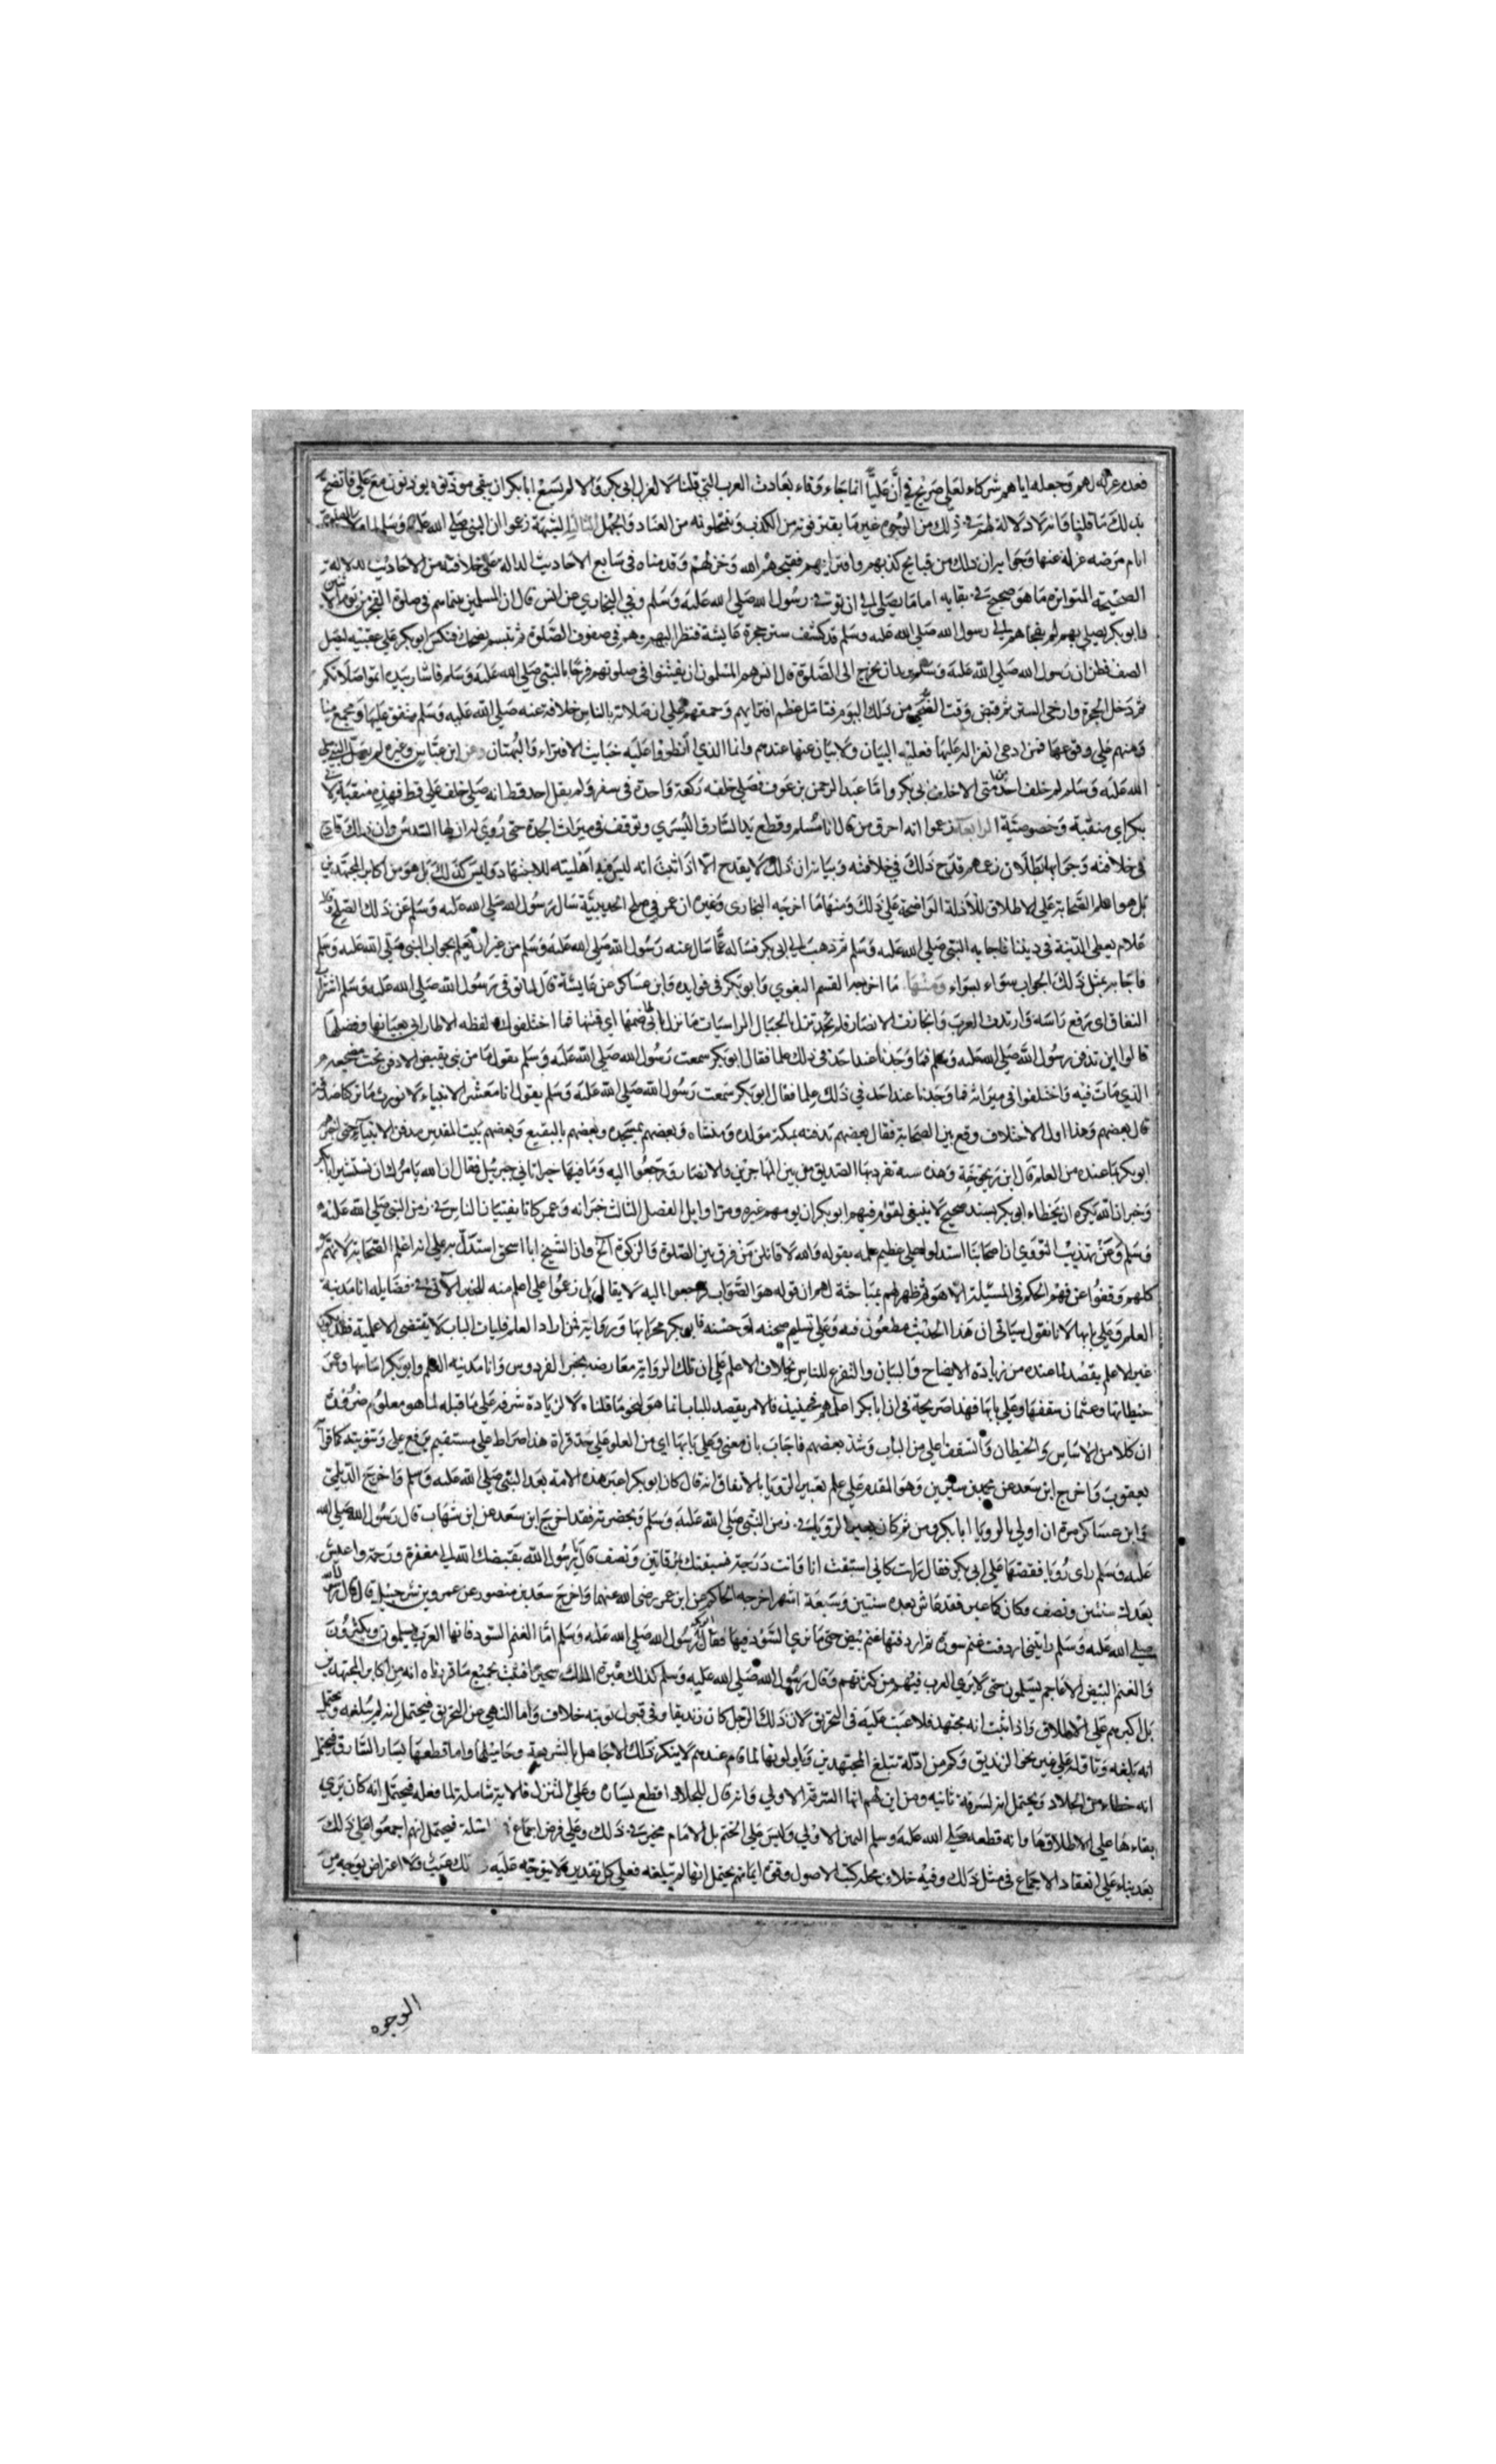 فعدم عزله لهم وجعله اياهم شركاء لعلي صريح في أن عليا انما جاء وفاء بعادت العرب التي قلنا لا لعزل ابي بكر والا لم يسع ابابكر ان يبقي موذنون يوذنون مع علي فاتضح
بذلك ما قلنا وانه لا دلالة لهم في ذلك من الوجوه غير ما يفترونه من الكذب وينتحلونه من العناد والجهل الثالثة لشبهة زعموا ان النبي صلي الله عليه وسلم لما امره بالصلوة
ايام مرضه عزله عنها وجوابه ان ذلك من قبايح كذبهم وافترائهم فقبحهم الله وخزلهم وقدمناه في سابع الاحاديث الدالة علي خلافته من الاحاديث
الصحيحة المتواترة ما هو صريح في بقايه اماما يصلي الي ان توفي رسول الله صلي الله عليه وسلم وفي البخاري عن انس قال ان المسلمين بينما هم في صلوة الفجر من يوم الاثنين
وابوبكر يصلي بهم لم يفجاهم الا رسول الله صلي الله عليه وسلم قد كشف ستر حجرة عايشة فنظر اليهم وهم في صفوف الصلوة ثم تبسم يضحك فنكص ابوبكر علي عقبيه ليصل
الصف فظن ان رسول الله صلي الله عليه وسلم يريد ان يخرج الي الصلوة قال انس هم المسلمون ان يفتتنوا في صلوتهم فرحا بالنبي صلي الله عليه وسلم فاشار بيده اتموا صلاتكم
ثم دخل الحجرة وارخي الستر ثم قبض وقت الضحي من ذلك اليوم فتامل عظم افترايهم وحمقهم علي ان صلاته بالناس خلافة عنه صلي الله عليه وسلم متفق عليها ومجمع منا
ومنهم علي وقوعها فمن ادعي انعزاله عليها فعليه البيان ولا بيان عنها عندهم وانما الذي انطووا عليه خبايث الافتراء والبهتان وعن ابن عباس وغيره لم يصل النبي صلي
الله عليه وسلم لم خلف احد من امتي الا خلف ابي بكر واما عبد الرحمن بن عوف فصلي خلفه ركعة واحدة في سفر ولم يقل احد قط انه صلي خلف علي قط فهذه منقبة لابي
بكر اي منقبة وخصوصية الرابعة زعموا انه احرق من قال انا مسلم وقطع يد السارق اليسري وتوقف في ميراث الجدة حتي روي له ان لها السدس وان ذلك قادح
في خلافته وجوابها بطلان زعمهم قدح ذلك في خلافته وبيانه ان ذلك لا يقدح الا اذا ثبت انه ليس فيه اهلية للاجتهاد وليس كذلك بل هو من اكابر المجتهدين
بل هو اعلم الصحابة علي الاطلاق للأدلة الواضحة علي ذلك ومنها ما اخرجه البخاري وغيره ان عمر في صلح الحديبية سال رسول الله صلي الله عليه وسلم عن ذلك الصلح وقال
علام يعطي الدنية في ديننا فاجابه النبي صلي الله عليه وسلم ثم ذهب الي ابي بكر فساله عما سال عنه رسول الله صلي الله عليه وسلم من غير ان يعلم بجواب النبي صلي الله عليه وسلم
فاجابه بمثل ذلك الجواب سواء بسواء ومنها ما اخرجه ابوالقسم البغوي وابوبكر في فوايده وابن عساكر عن عايشة قالت لما توفي رسول الله صلي الله عليه وسلم اشراب
النفاق اي رفع راسه وارتدت العرب وانحازت الانصار فلو نزل بالجبال الراسيات ما نزل بابي لهاضها اي فتنها فما اختلفوا في لفظه الا طار ابي بعبابها وفصلها
قالوا اين ندفن رسول الله صلي الله عليه وسلم فما وجدنا عند احد في ذلك علما فقال ابوبكر سمعت رسول الله صلي الله عليه وسلم يقول ما من نبي يقبض الا دفن تحت مضجعه
الذي مات فيه واختلفوا في ميراثه فما وجدنا عند احد في ذلك علما فقال ابوبكر سمعت رسول الله صلي الله عليه وسلم يقول انا معشر الانبياء لا نورث ما تركنا صدقة
قال بعضهم وهذا اول الاختلاف وقع بين الصحابة فقال بعضهم ندفنه بمكة مولده ومنشاه وبعضهم بمسجده وبعضهم بالبقيع وبعضهم ببيت المقدس مدفن الانبياء حتي اخبرهم
ابوبكر بما عنده من العلم قال ابن زنجويه وهذه سنة تفرد بها الصديق من بين المهاجرين والانصار ورجعوا اليه وما فيها خبر اتاني جبريل فقال ان الله يامرك ان تستشير ابابكر
وخبر ان الله يكره ان يخطاء ابوبكر بسند صحيح لا ينبغي لقوم فيهم ابوبكر ان يومهم غيره ومر اوايل الفصل الثالث خبر انه وعمر كانا يفتيان الناس في زمن النبي صلي الله عليه
وسلم وعن تهذيب النووي ان اصحابنا استدلوا علي عظيم علمه بقوله والله لا قاتلن من فرق بين الصلوة والزكوة الخ وان الشيخ ابا اسحق استدل به علي انه اعلم الصحابة لانهم
كلهم وقفوا عن فهم الحكم في المسئلة الا هو ثم ظهر لهم بمباحثة لهم ان قوله هو الصواب فرجعوا اليه لا يقال بل زعموا علي اعلم منه للخبر الآتي في فضايله انا مدينة
العلم وعلي بابها لانا نقول سياتي ان هذا الحديث مطعون فيه وعلي تسليم صحته او حسنه فابوبكر محرابها ورواية فمن اراد العلم فليات الباب لا يقتضي الاعلمية فقد يكون
غير الاعلم يقصد لما عنده من زيادة الايضاح والبيان والتفرغ للناس بخلاف الاعلم علي ان تلك الرواية معارضه بخبر الفردوس وانا مدينة العلم وابوبكر اساسها وعمر
حيطانها وعثمان سقفها وعلي بابها فهذا صريحة في ان ابابكر اعلمهم فحينئذ فالامر بقصد الباب انما هو لنحو ما قلناه لا لزيادة شرفه علي ما قبله لما هو معلوم ضرورة
ان كلا من الاساس والحيطان والسقف اعلي من الباب وشذ بعضهم فاجاب بان معني وعلي بابها اي من العلو علي حد قراة هذا صراط علي مستقيم برفع علي وتنوينه كما قرأ
يعقوب واخرج ابن سعد عن محمد بن سيرين وهو المقدم علي علم تعبير الرؤيا بالاتفاق انه قال كان ابوبكر اعبر هذه الامة بعد النبي صلي الله عليه وسلم واخرج الديلمي
وابن عساكر مرة ان اولي بالرويا ابابكر ومن ثم كان يعبر الرؤيا في زمن النبي صلي الله عليه وسلم وبحضرته فقد اخرج ابن سعد عن ابن شهاب قال رسول الله صلي الله
عليه وسلم راي رؤيا فقصها علي ابي بكر فقال رايت كاني استبقت انا وانت درجة فسبقتك بمرقاتين ونصف قال يا رسول الله يقبضك الله الي مغفرة ورحمة واعيش
بعدك سنتين ونصف وكان كما عبر فقد عاش بعده سنتين وسبعة اشهر اخرجه الحاكم عن ابن عمر رضي الله عنهما واخرج سعد بن منصور عن عمرو بن شرحبيل قال قال رسول الله
صلي الله عليه وسلم رايتني اردفت غنم سود ثم اردفتها غنم بيض حتي ما نري السود فيها فقال ابوبكر رسول الله صلي الله عليه وسلم اما الغنم السود فانها العرب يسلمون ويكثرون
والغنم البيض الاعاجم يسلمون حتي لا يري العرب فيهم من كثرتهم وقال رسول الله صلي الله عليه وسلم كذلك عبره الملك سحيرا فثبت بجميع ما قررناه انه من اكابر المجتهدين
بل اكبرهم علي الاطلاق واذا ثبت انه مجتهد فلا عيب عليه في التحريق لان ذلك الرجل كان زنديقا وفي قبول توبته خلاف واما النهي عن التحريق فيحتمل انه لم يبلغه ويحتمل
انه بلغه وتاوله علي غير نحو الزنديق وكم من ادلة تبلغ المجتهدين وياولونها لما قام عندهم لا ينكر ذلك الا جاهل بالشريعة وحامليها واما قطعه يسار السارق فيحتمل
انه خطاء من الجلاد ويحتمل انه لسرقة ثانيه ومن اين لهم انها السرقة الاولي وانه قال للجلاد اقطع يساره وعلي التنزل فالاية شاملة لما فعله فيحتمل انه كان يري
بقاءها علي اطلاقها وانه قطعه صلي الله عليه وسلم اليمن الاولي وليس علي الختم بل الامام مخير في ذلك وعلي فرض اجماع في المسئلة فيحتمل انهم اجمعوا علي ذلك
بعد بناء علي انعقاد الاجماع في مثل ذلك وفيه خلاف محله كتب الاصول وقراة ايمانهم يحتمل انها لم تبلغه فعلي كل تقدير لا يتوجه عليه ذلك عتب ولا اعتراض بوجه من
الوجوه